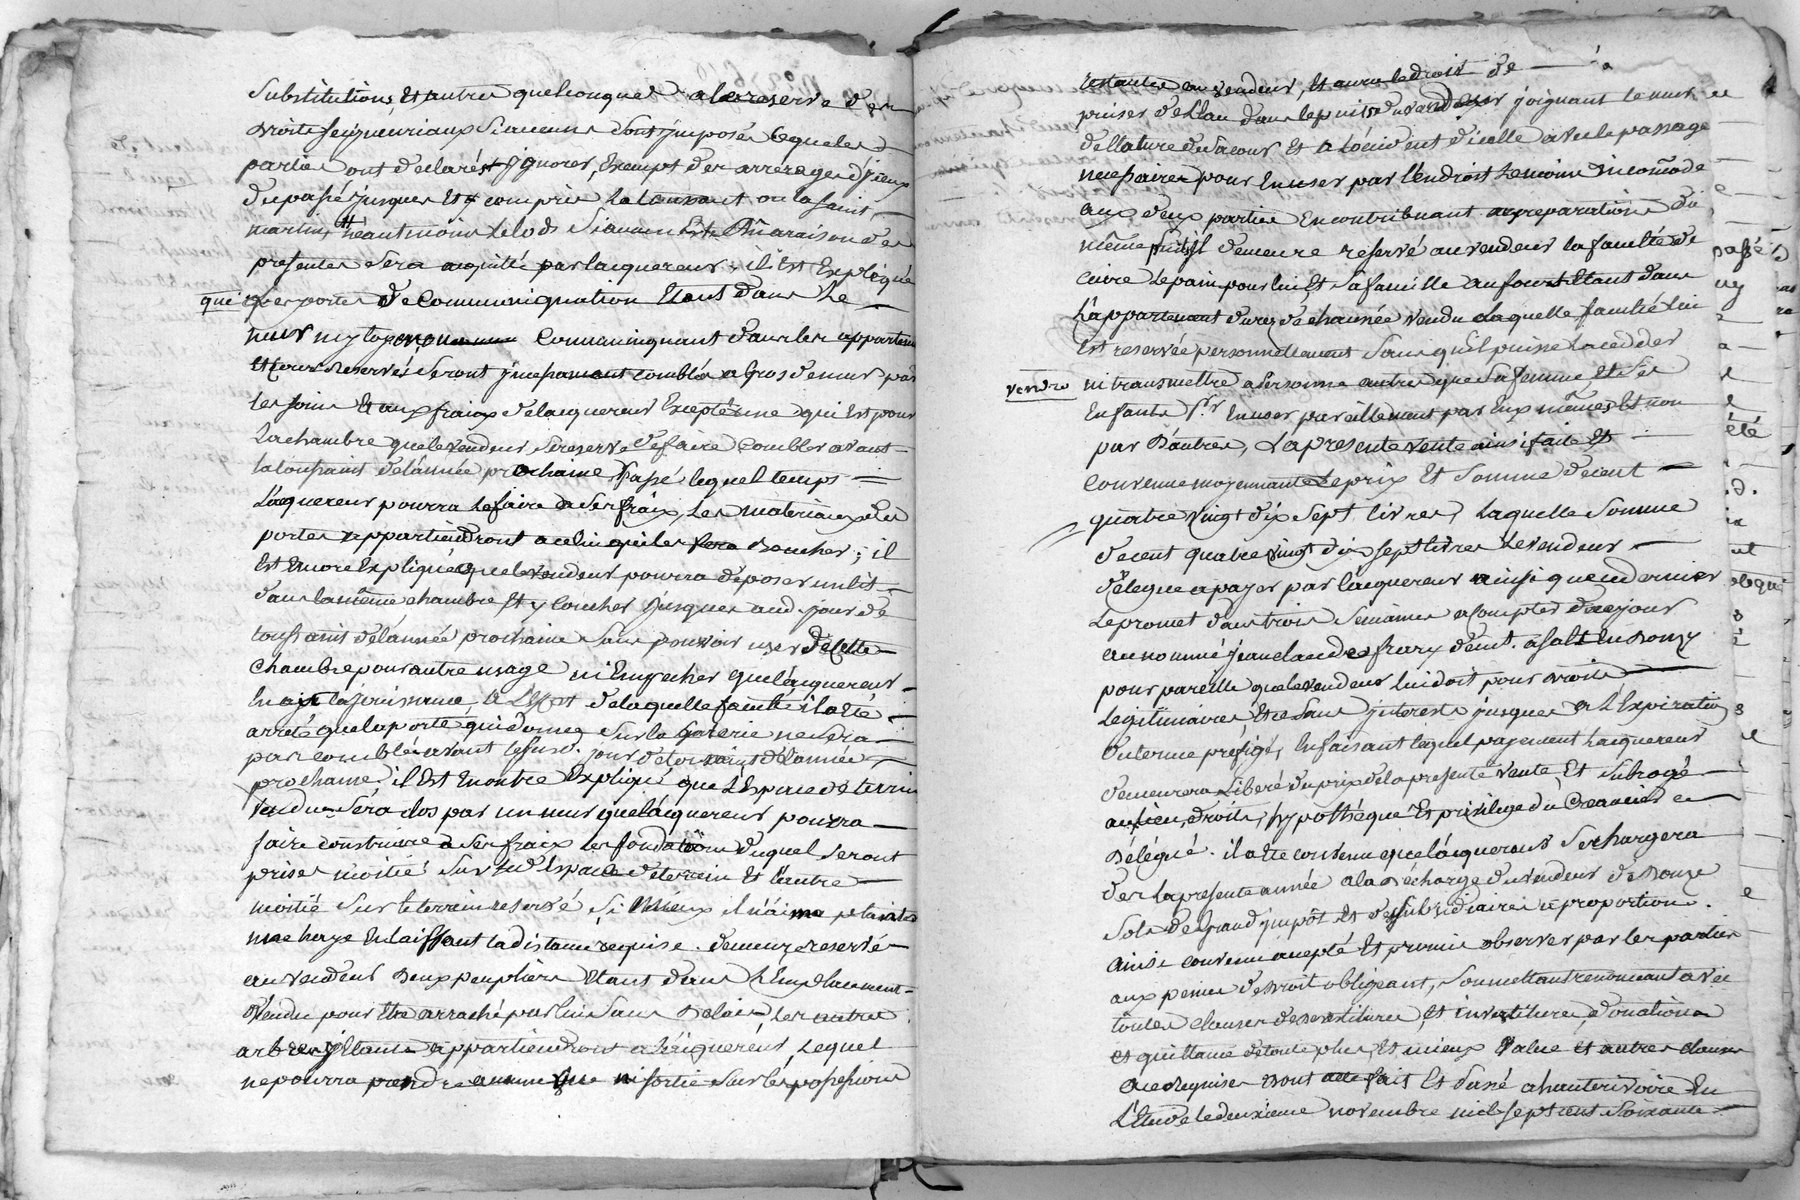 Substitutions Et autres quelconques a la reserve des
droits seigneuriaux Si aucuns sont jmposés lesquels
parties ont déclarés jgnorer, Exempt des arrérages d'jceux
du passé jusques Et compris la toussaint ou la saint
martin, Neantmoins Le lods Si aucun Est Dû a raison des
presentes Sera acquitté par lacquereur, il Est Expliqué
que les portes de Communiquation Etant dans Le
mur mytoyen Communiquant dans les appartem
Et cour reservés Seront jncessament comblés a gros de mur par
les soins Et aux fraix de lacquereur Excepté une qui Est pour
La chambre que le vendeur se reserve de faire Combler avant
la toussaint de lannée prochaine, passé lequel temps
Lacquereur pourra Le faire a Ses fraix, Les materiaux des
portes appartiendront a celui qui les fera boucher; il
Est Encore Expliqué que le vendeur pourra déposer un lit
dans la même chambre Et y coucher jusques aud. jour de
toussaint de lannée prochaine Sans pouvoir user de Cette
chambre pour autre usage ni Empecher que lacquereur
En aye la jouissance, a L'effet de laquelle faculté il a Eté
arreté que la porte qui donne Sur la galerie ne Sera
pas comblée avant le susd. jour de toussaint de lannée
prochaine, il Est En outre Expliqué que L'Espace de terrein
vendue Sera clos par un mur que lacquereur pourra
faire construire a Ses fraix les fondations duquel Seront
prises moitié Sur led. Espace de terrein Et l'autre
moitié Sur le terrein reservé Si mieux il n'aime planter
une haye En laissant la distance requise. demeure reservé
au vendeur Deux peupliers Etant dans L'Emplacement
Vendu pour Etre arraché par lui Sans Delais, Les autres
arbres y Etants appartiendront a lacquereur, Lequel
ne pourra prendre aucune vue ni sortie Sur les possessions
restantes au vendeur, Et aura le droit de
puiser de L'Eau dans le puits du vendeur joignant le mur
de cloture de sa cour Et a l'orient d'icelle avec le passage
necessaire pour En user par l'Endroit Le moins incomode
aux deux parties En contribuant aux reparations du
même puits, il demeure reservé au vendeur la faculté de
cuire Le pain pour lui Et Sa famille au four Etant dans
L'appartement du rez de chaussée vendu Laquelle faculté lui
Est reservée personnellement Sans qu'il puisse La cedder
vendre ni transmettre a personne autre que Sa femme, Et Ses
Enfants pr. En user pareillement par Eux mêmes Et non
par D'autres, La presente vente ainsi faite Et
Convenue moyennant Le prix Et Somme de cent
quatre vingt dix Sept livres, Laquelle Somme
de cent quatre vingt dix sept livres Le vendeur
délegue a payer par lacquereur ainsi que ce dernier
Le promet dans trois Semaines a compter de ce jour
au nommé jean claude
pour pareille que le vendeur lui doit pour droits
Legitimaires Et ce Sans jnterests jusques a L'Expiration
du terme préfigé, En faisant lequel payement Lacquereur
demeurera Liberé du prix de la presente vente, Et Subrogé
au lieu, droits, hypothéque Et privilege du Creancier
Délégué. il a Eté convenu que lacquereur Se chargera
des la presente année a la Décharge du vendeur de Douze
Sols de grand jmpôt Et des subsidiaires a proportion.
Ainsi convenu accepté Et promis observer par les parties
aux peines de droit obligeant, Soumettant renonceant avec
toutes clauses de devestitures, Et investitures, donation
Et quittance de toute plus, Et mieux Value Et autres clauses
Ace requises dont acte fait Et Passé a hauterivoire En
L'Etude Le deuxieme novembre mil Sept cent Soixante